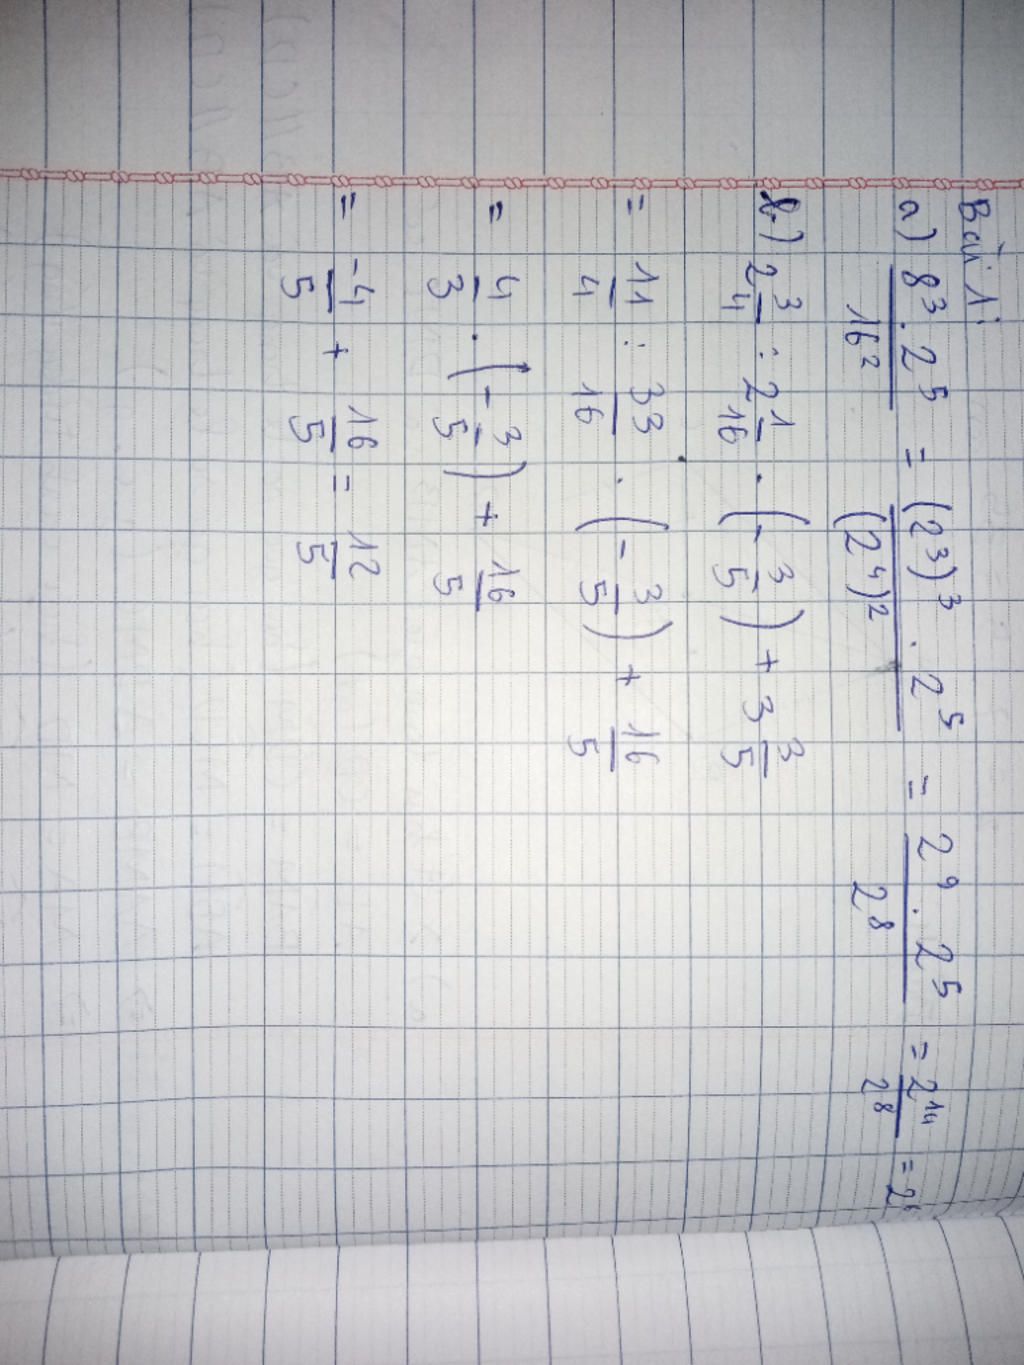 Bài 1:
a) 8³.2⁵/16² = (2³)³.2⁵/(2⁴)² = 2⁹.2⁵/2⁸ = 2¹⁴/2⁸ = 2⁶
b) 2 3/4 : 2 1/16 . (-3/5) + 3 3/5
= 11/4 : 33/16 . (-3/5) + 16/5
= 4/3 . (-3/5) + 16/5
= -4/5 + 16/5 = 12/5